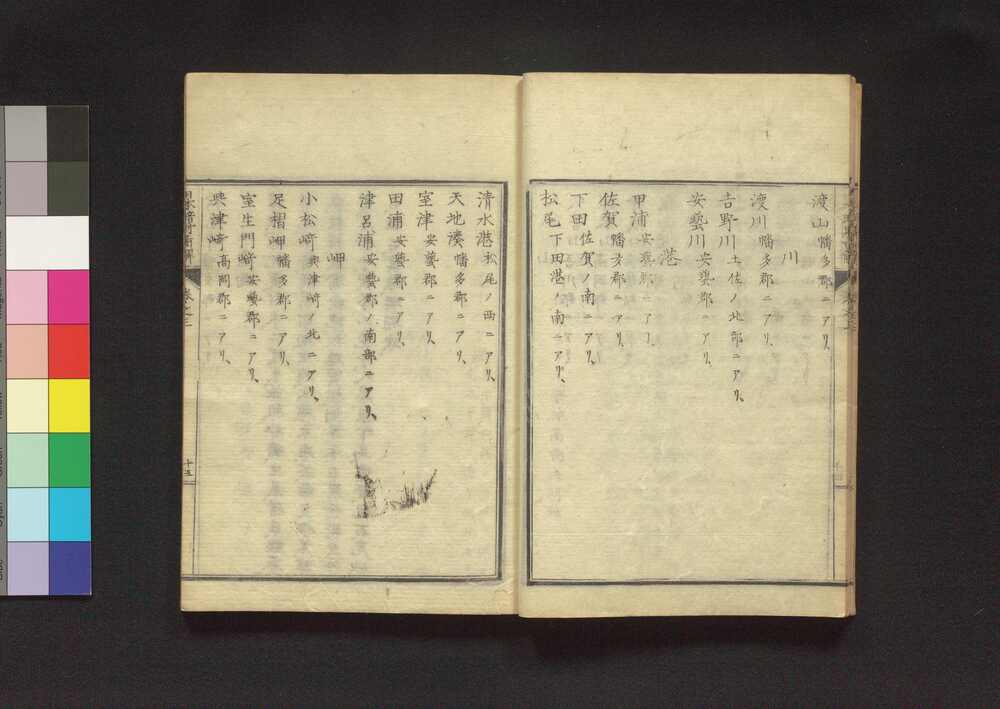 渡山幡多郡ニアリ、
川
渡川幡多郡ニアリ、
吉野川土佐ノ北部ニアリ、
安藝川安藝郡ニアリ、
港
甲浦安藝郡ニアリ、
佐賀幡多郡ニアリ、
下田佐賀ノ南ニアリ、
松尾下田港ノ南ニアリ、
清水港松尾ノ西ニアリ、
天地湊幡多郡ニアリ、
室津安藝郡ニアリ、
田浦安藝郡ニアリ、
津呂浦安藝郡ノ南部ニアリ、
岬
小松﨑興津﨑ノ北ニアリ、
足摺岬幡多郡ニアリ、
室生門﨑安藝郡ニアリ、
興津﨑高岡郡ニアリ、
卷之三
十五